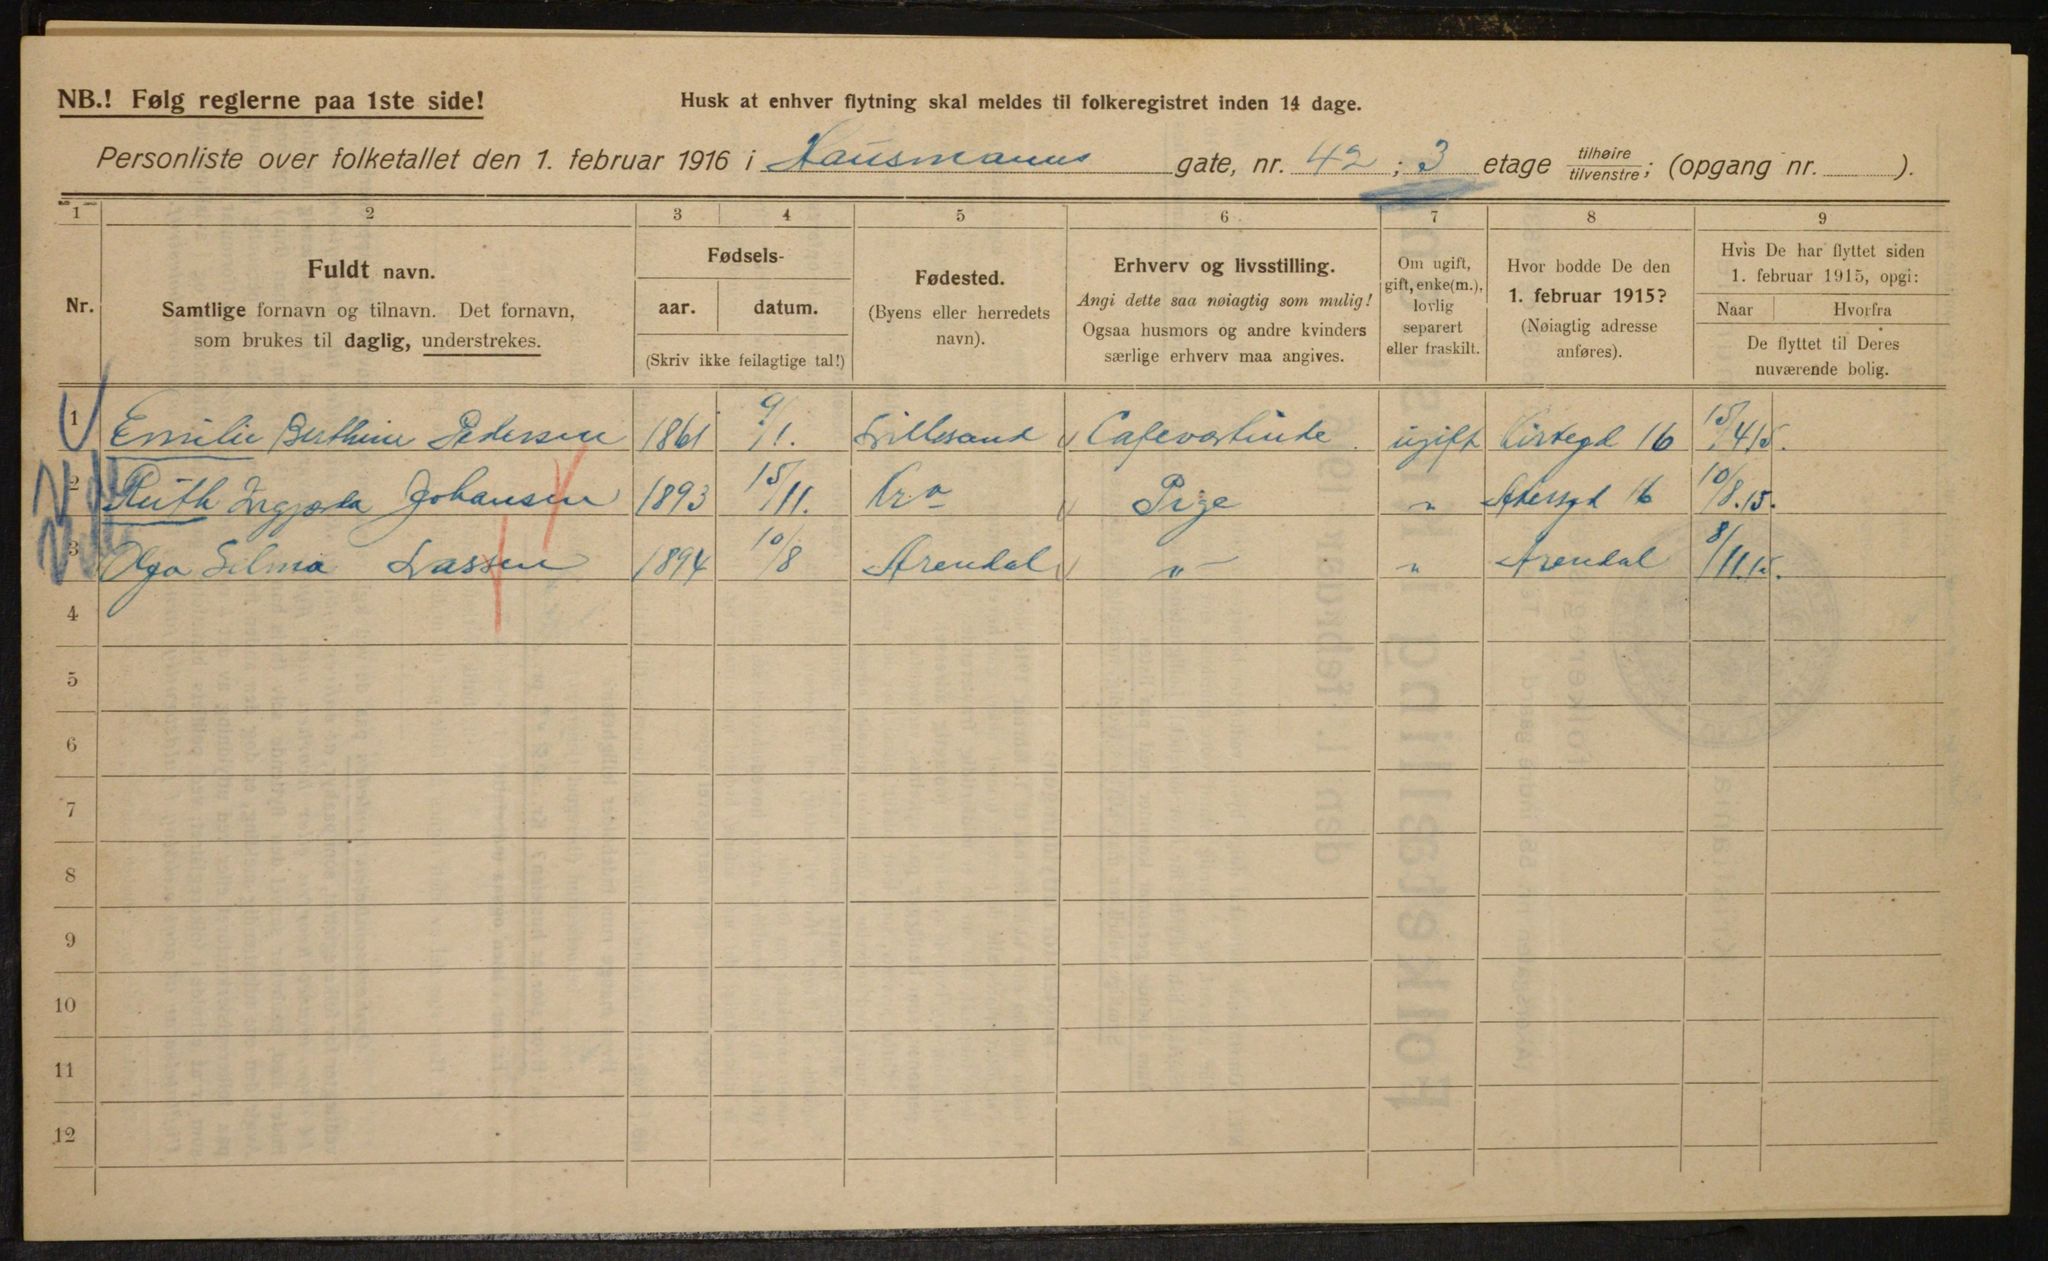 NB.! Følg reglerne paa 1ste side!
Husk at enhver flytning skal meldes til folkeregistret inden 14 dage.
Personliste over folketallet den 1. februar 1916 i Hausmanns gate, nr. 42 ; 3 etage tilhøire tilvenstre; (opgang nr. ).
1 2 3 4 5 6 7 8 9
Nr.
Fuldt navn.
Samtlige fornavn og tilnavn. Det fornavn,
som brukes til daglig, understrekes.
Fødsels-
aar. datum.
(Skriv ikke feilagtige tal!)
Fødested.
(Byens eller herredets
navn).
Erhverv og livsstilling.
Angi dette saa nøiagtig som mulig!
Ogsaa husmors og andre kvinders
særlige erhverv maa angives.
Om ugift,
gift, enke(m.),
lovlig
separert
eller fraskilt.
Hvor bodde De den
1. februar 1915?
(Nøiagtig adresse
anføres).
Hvis De har flyttet siden
1. februar 1915, opgi:
Naar Hvorfra
De flyttet til Deres
nuværende bolig.
1 Emilie Berthine Pedersen 1861 9/1. Lillesand Cafevertinde ugift Kirkegd 16 15/4 15.
2 Ruth Ingjerda Johansen 1893 15/11. Kr a Pige " Akersgt 16 10/8.15.
3 Olga Silma Lassen 1894 10/8 Arendal " " Arendal 8/11.15.
4
5
6
7
8
9
10
11
12